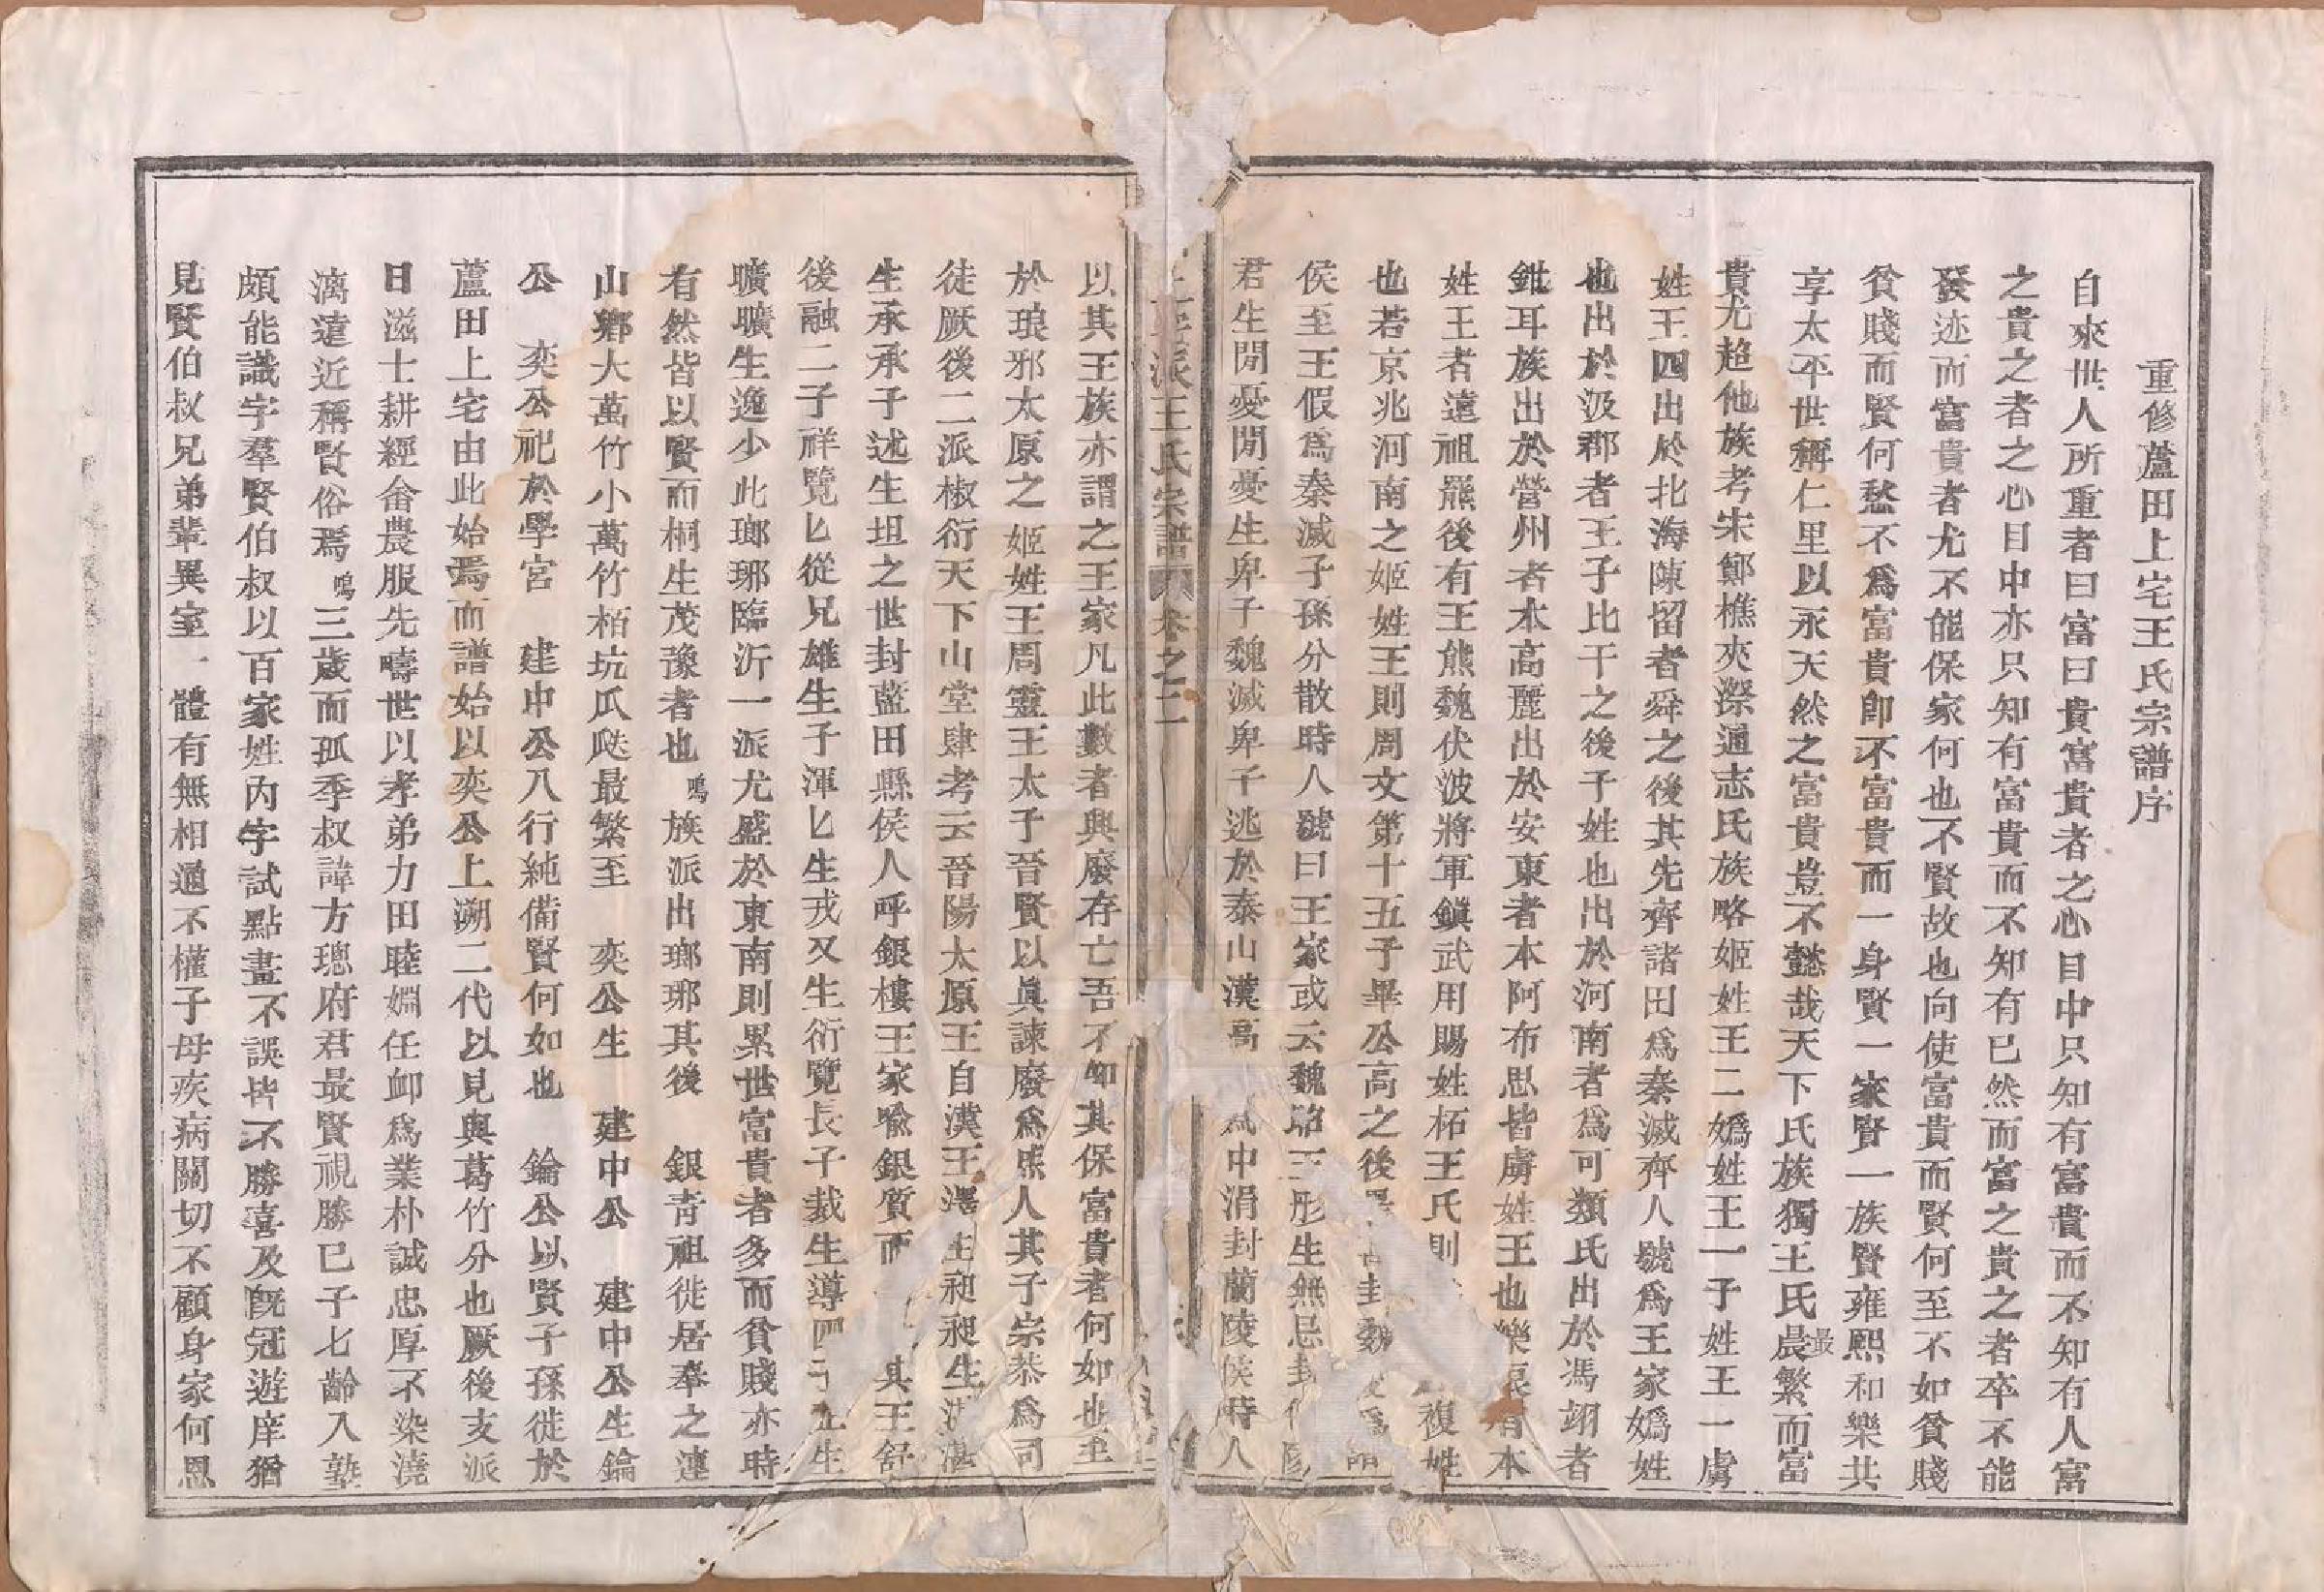 重修蘆田上宅王氏宗譜序
自來世人所重者曰富曰貴富貴者之心目中只知有富貴而不知有人富
之貴之者之心目中亦只知有富貴而不知有已然而富之貴之者卒不能
發迹而富貴者尤不能保家何也不賢故也向使富貴而賢何至不如貧賤
貧賤而賢何愁不爲富貴卽不富貴而一身賢一家賢一族賢雍熙和樂共
享太平世稱仁里以永天然之富貴豈不懿哉天下氏族獨王氏晨最繁而富
貴尤超他族考宋鄭樵夾漈通志氏族略姬姓王二嬀姓王一子姓王一虜
姓王四出於北海陳留者舜之後其先齊諸田爲秦滅齊人號爲王家嬀姓
也出於汲郡者王子比干之後子姓也出於河南者爲可頻氏出於馮翊者
鉗耳族出於營州者本高麗出於安東者本阿布思皆虜姓姓王也樂浪者本
姓王者遠祖羆後有王熊魏伏波將軍鎮武用賜姓柘王氏則複姓
也若京兆河南之姬姓王則周文第十五子畢公高之後封魏爲諸
侯至王假爲秦滅子孫分散時人號曰王家或云魏昭王彤生無忌封信陵
君生間憂間憂生卑子魏滅卑子逃於泰山漢高爲中涓封蘭陵侯時人
王氏宗譜 卷之二
以其王族亦謂之王家凡此數者興廢存亡吾不知其保富貴者何如也至
於琅邪太原之姬姓王周靈王太子晉賢以眞諫廢爲庶人其子宗恭爲司
徒厥後二派椒衍天下山堂肆考云晉陽太原王自漢王澤生昶昶生湛湛
生承承子述生坦之世封藍田縣侯人呼銀樓王家喻銀質而其王舒
後融二子祥覽匕從兄雄生子渾匕生戎又生衍覽長子裁生導四子正生
曠曠生逸少此瑯琊臨沂一派尤盛於東南則累世富貴者多而貧賤亦時
有然皆以賢而桐生茂豫者也鳴族派出瑯琊其後 銀青祖徙居奉之連
山鄉大萬竹小萬竹栢坑瓜瓞最繁至 奕公生 建中公 建中公生錀
公 奕公祀於學宮 建中公八行純備賢何如也 錀公以賢子孫徙於
蘆田上宅由此始焉而譜始以奕公上溯二代以見與葛竹分也厥後支派
日滋士耕經畬農服先疇世以孝弟力田睦婣任卹爲業朴誠忠厚不染澆
漓遠近稱賢俗焉鳴三歲而孤季叔諱方璁府君最賢視勝已子七齡入塾
頗能識字羣賢伯叔以百家姓內字試點畫不誤皆不勝喜及旣冠遊庠猶
見賢伯叔兄弟輩異室一體有無相通不權子母疾病關切不顧身家何恩